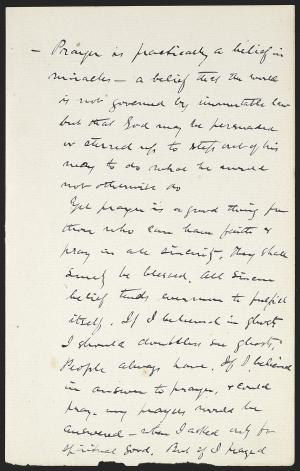 — Prayer is practically a belief in
miracles — a belief that the world
is not governed by immutable law
but that God may be persuaded
or stirred up to step out of his
way to do what he would
not otherwise do
Yet prayer is a good thing for
those who can have faith &
pray in all sincerity. They shall
surely be blessed. All sincere
belief tends ever more to fulfill
itself. If I believed in ghosts
I should doubtless see ghosts;
People always have. If I believed
in answer to prayer, & could
pray, my prayers would be
answered — when I asked only for
spiritual good. But if I prayed